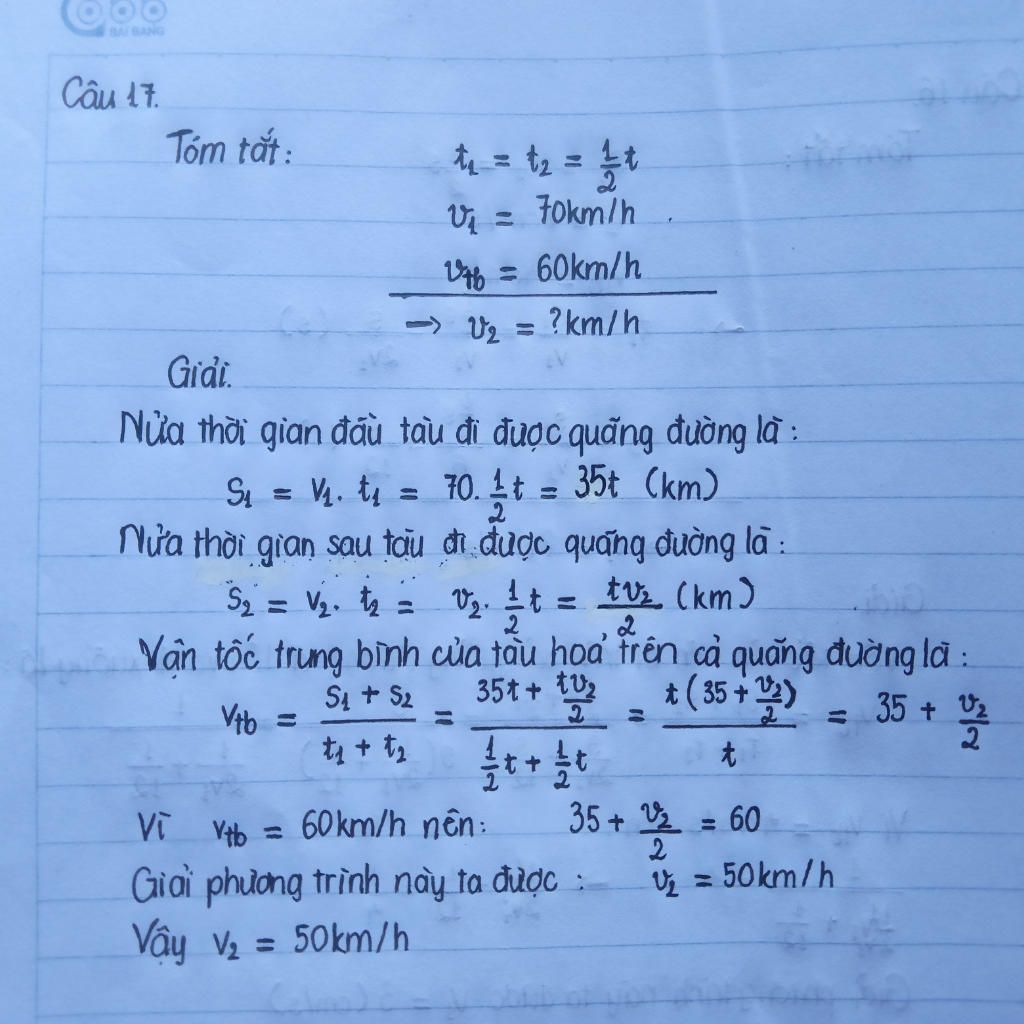 BAI BANG
Câu 17.
Tóm tắt: t₁ = t₂ = 1/2 t
v₁ = 70km/h
vtb = 60km/h
→ v₂ = ?km/h
Giải.
Nửa thời gian đầu tàu đi được quãng đường là:
S₁ = v₁. t₁ = 70. 1/2 t = 35t (km)
Nửa thời gian sau tàu đi được quãng đường là:
S₂ = v₂. t₂ = v₂. 1/2 t = tv₂/2 (km)
Vận tốc trung bình của tàu hoả trên cả quãng đường là:
vtb = (S₁ + S₂)/(t₁ + t₂) = (35t + tv₂/2)/(1/2 t + 1/2 t) = t(35 + v₂/2)/t = 35 + v₂/2
Vì vtb = 60km/h nên: 35 + v₂/2 = 60
Giải phương trình này ta được: v₂ = 50km/h
Vậy v₂ = 50km/h